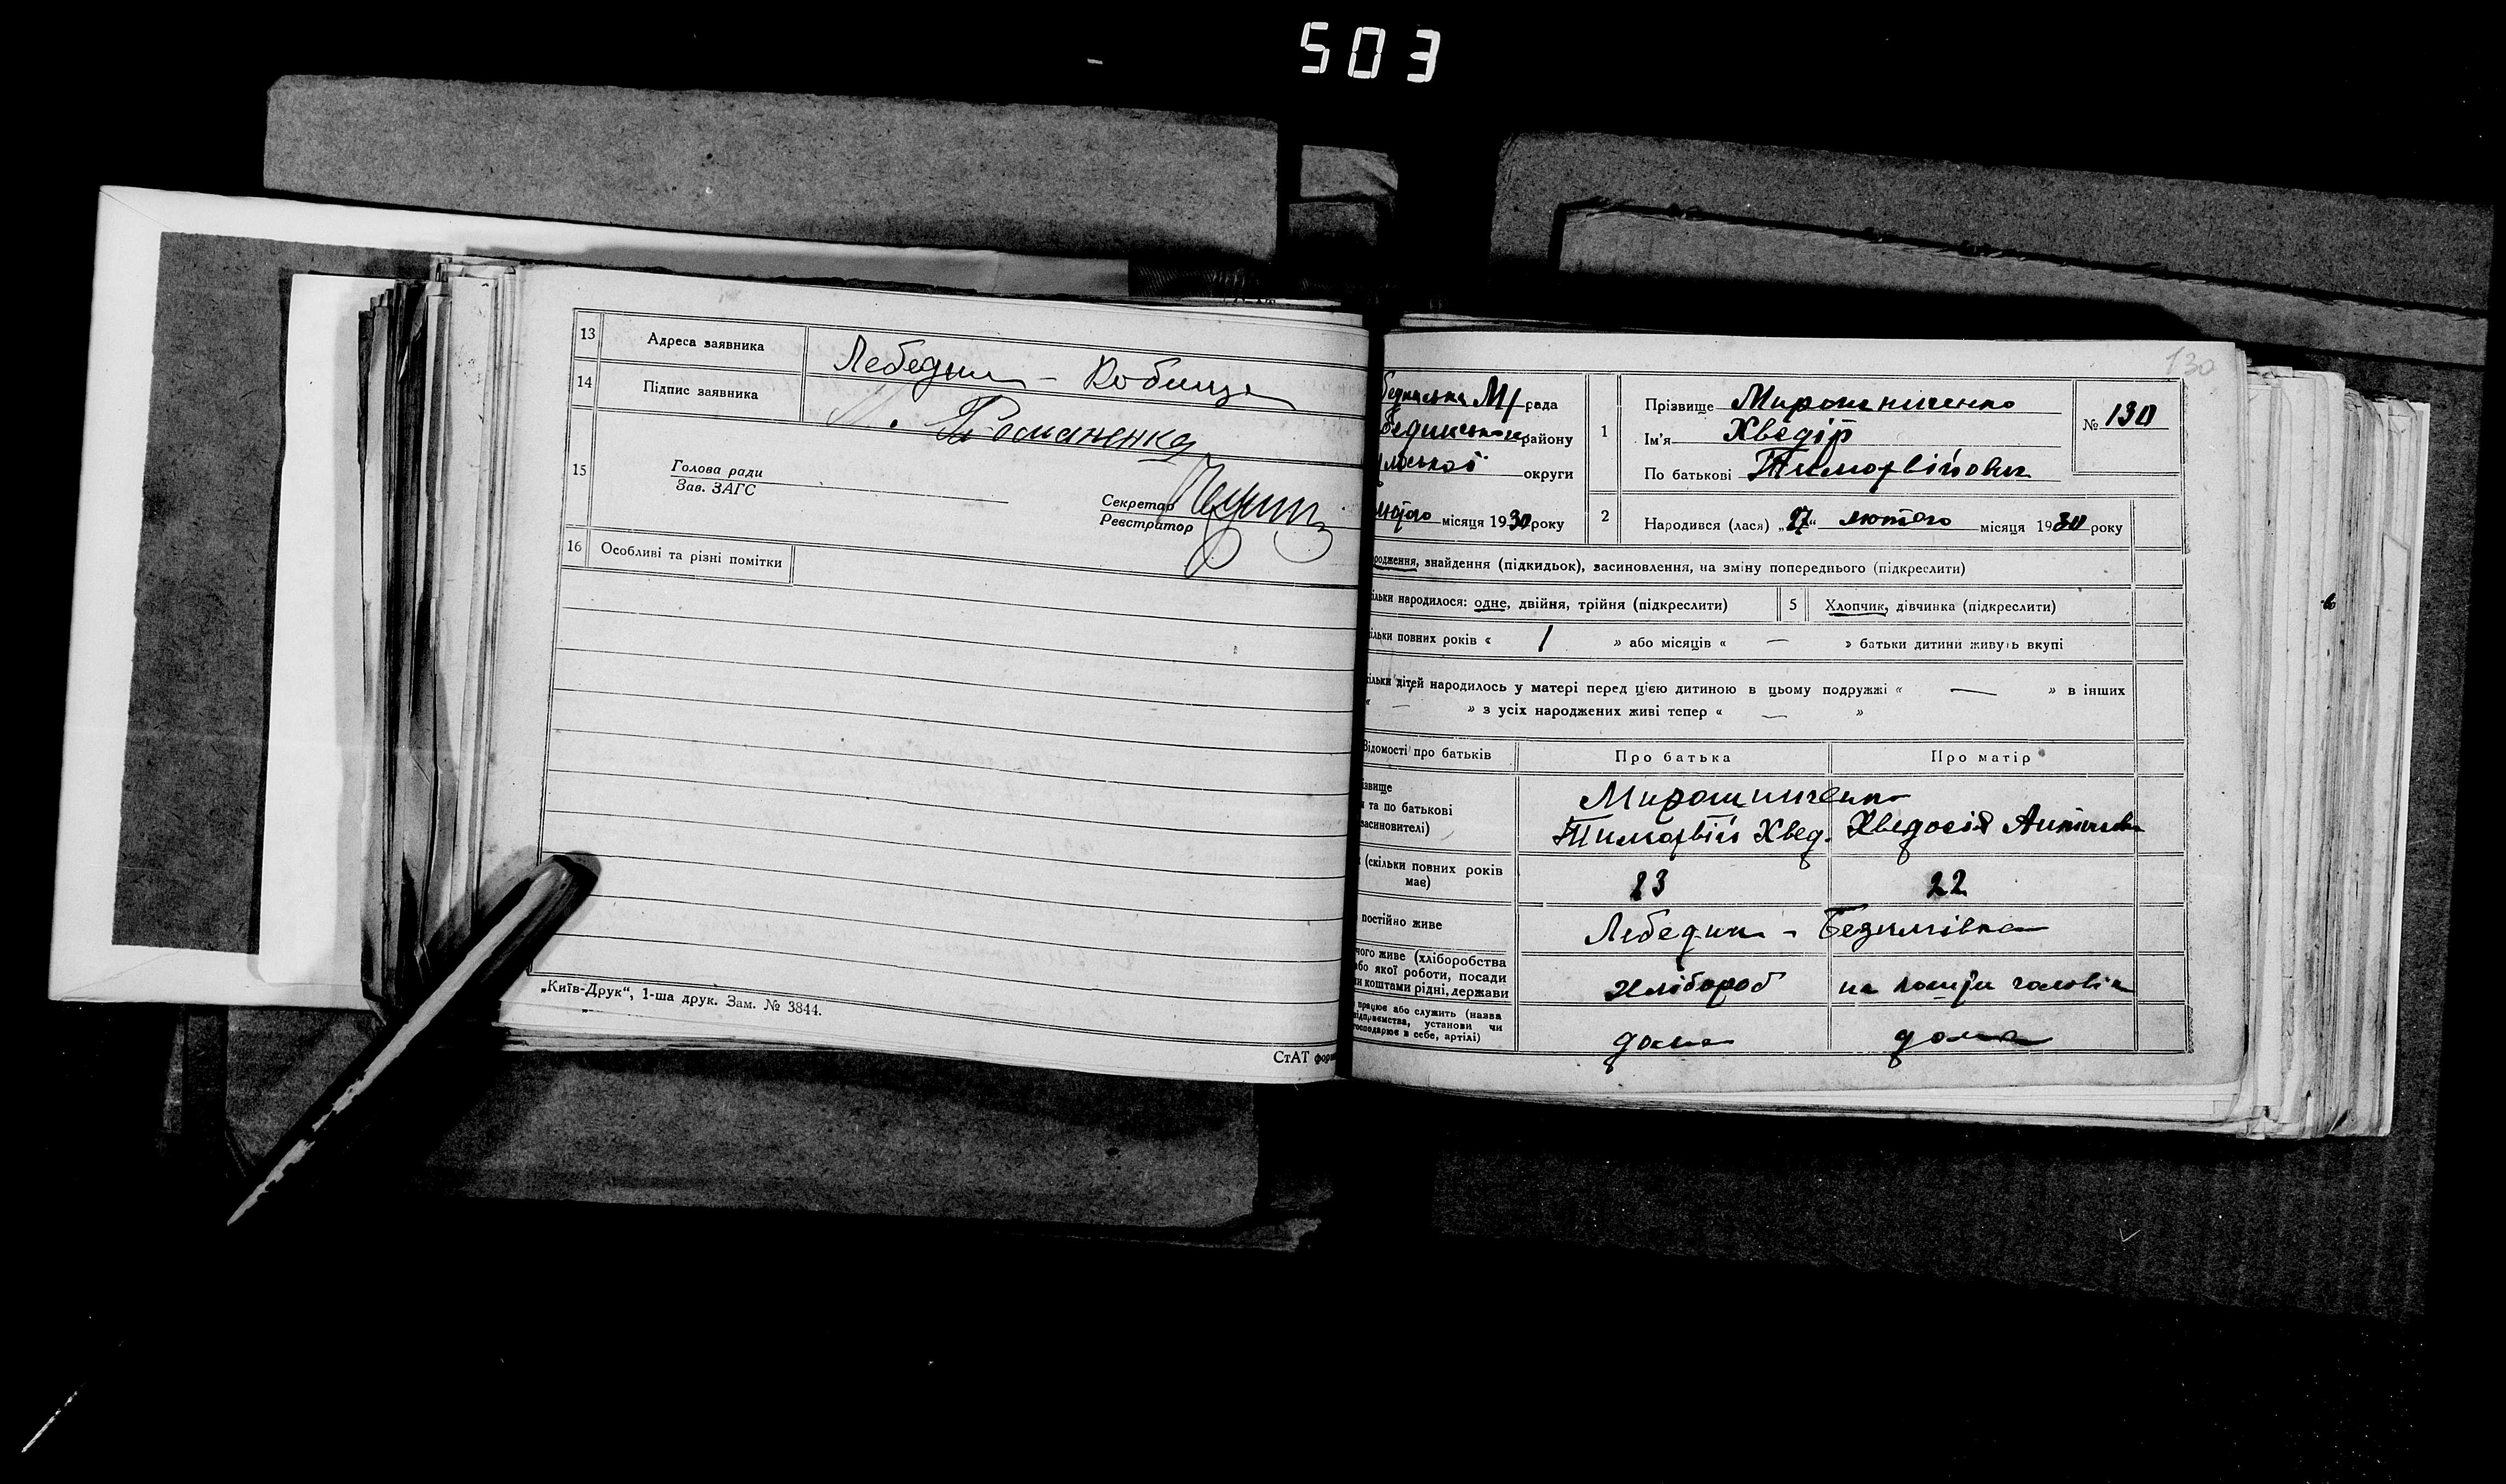 503
13 Адреса заявника Лебедин - Кобище
14 Підпис заявника Романенко
15 Голова ради
Зав. ЗАГС
Секретар
Реєстратор
16 Особливі та різні помітки
„Київ-Друк“, 1-ша друк. Зам. № 3844.
СтАТ фор
130
бединська М/рада
бединського району
округи
лютого місяця 1930 року
1 Прізвище Мирошниченко
Ім'я Хведір
По батькові Тимофвійович
№ 130
2 Народився (лася) „27“ лютого місяця 1930 року
родження, знайдення (підкидьок), васиновлення, на зміну попереднього (підкреслити)
ільки народилося: одне, двійня, трійня (підкреслити) 5 Хлопчик, дівчинка (підкреслити)
ільки повних років « 1 » або місяців « — » батьки дитини живуть вкупі
ільки дітей народилось у матері перед цією дитиною в цьому подружжі « — » в інших
« — » з усіх народжених живі тепер « — »
Відомості про батьків Про батька Про матір
ізвище
та по батькові
васиновителі)
Мирошниченко
Тимофвій Хвед. Хведосія
(скільки повних років
має)
23 22
постійно живе Лебедин - Безимівка
чого живе (хліборобства
або якої роботи, посади
чи коштами рідні, держави
хлібороб на помочи чоловіка
працює або служить (назва
підприємства, установи чи
господарює в себе, артілі)
дома дома